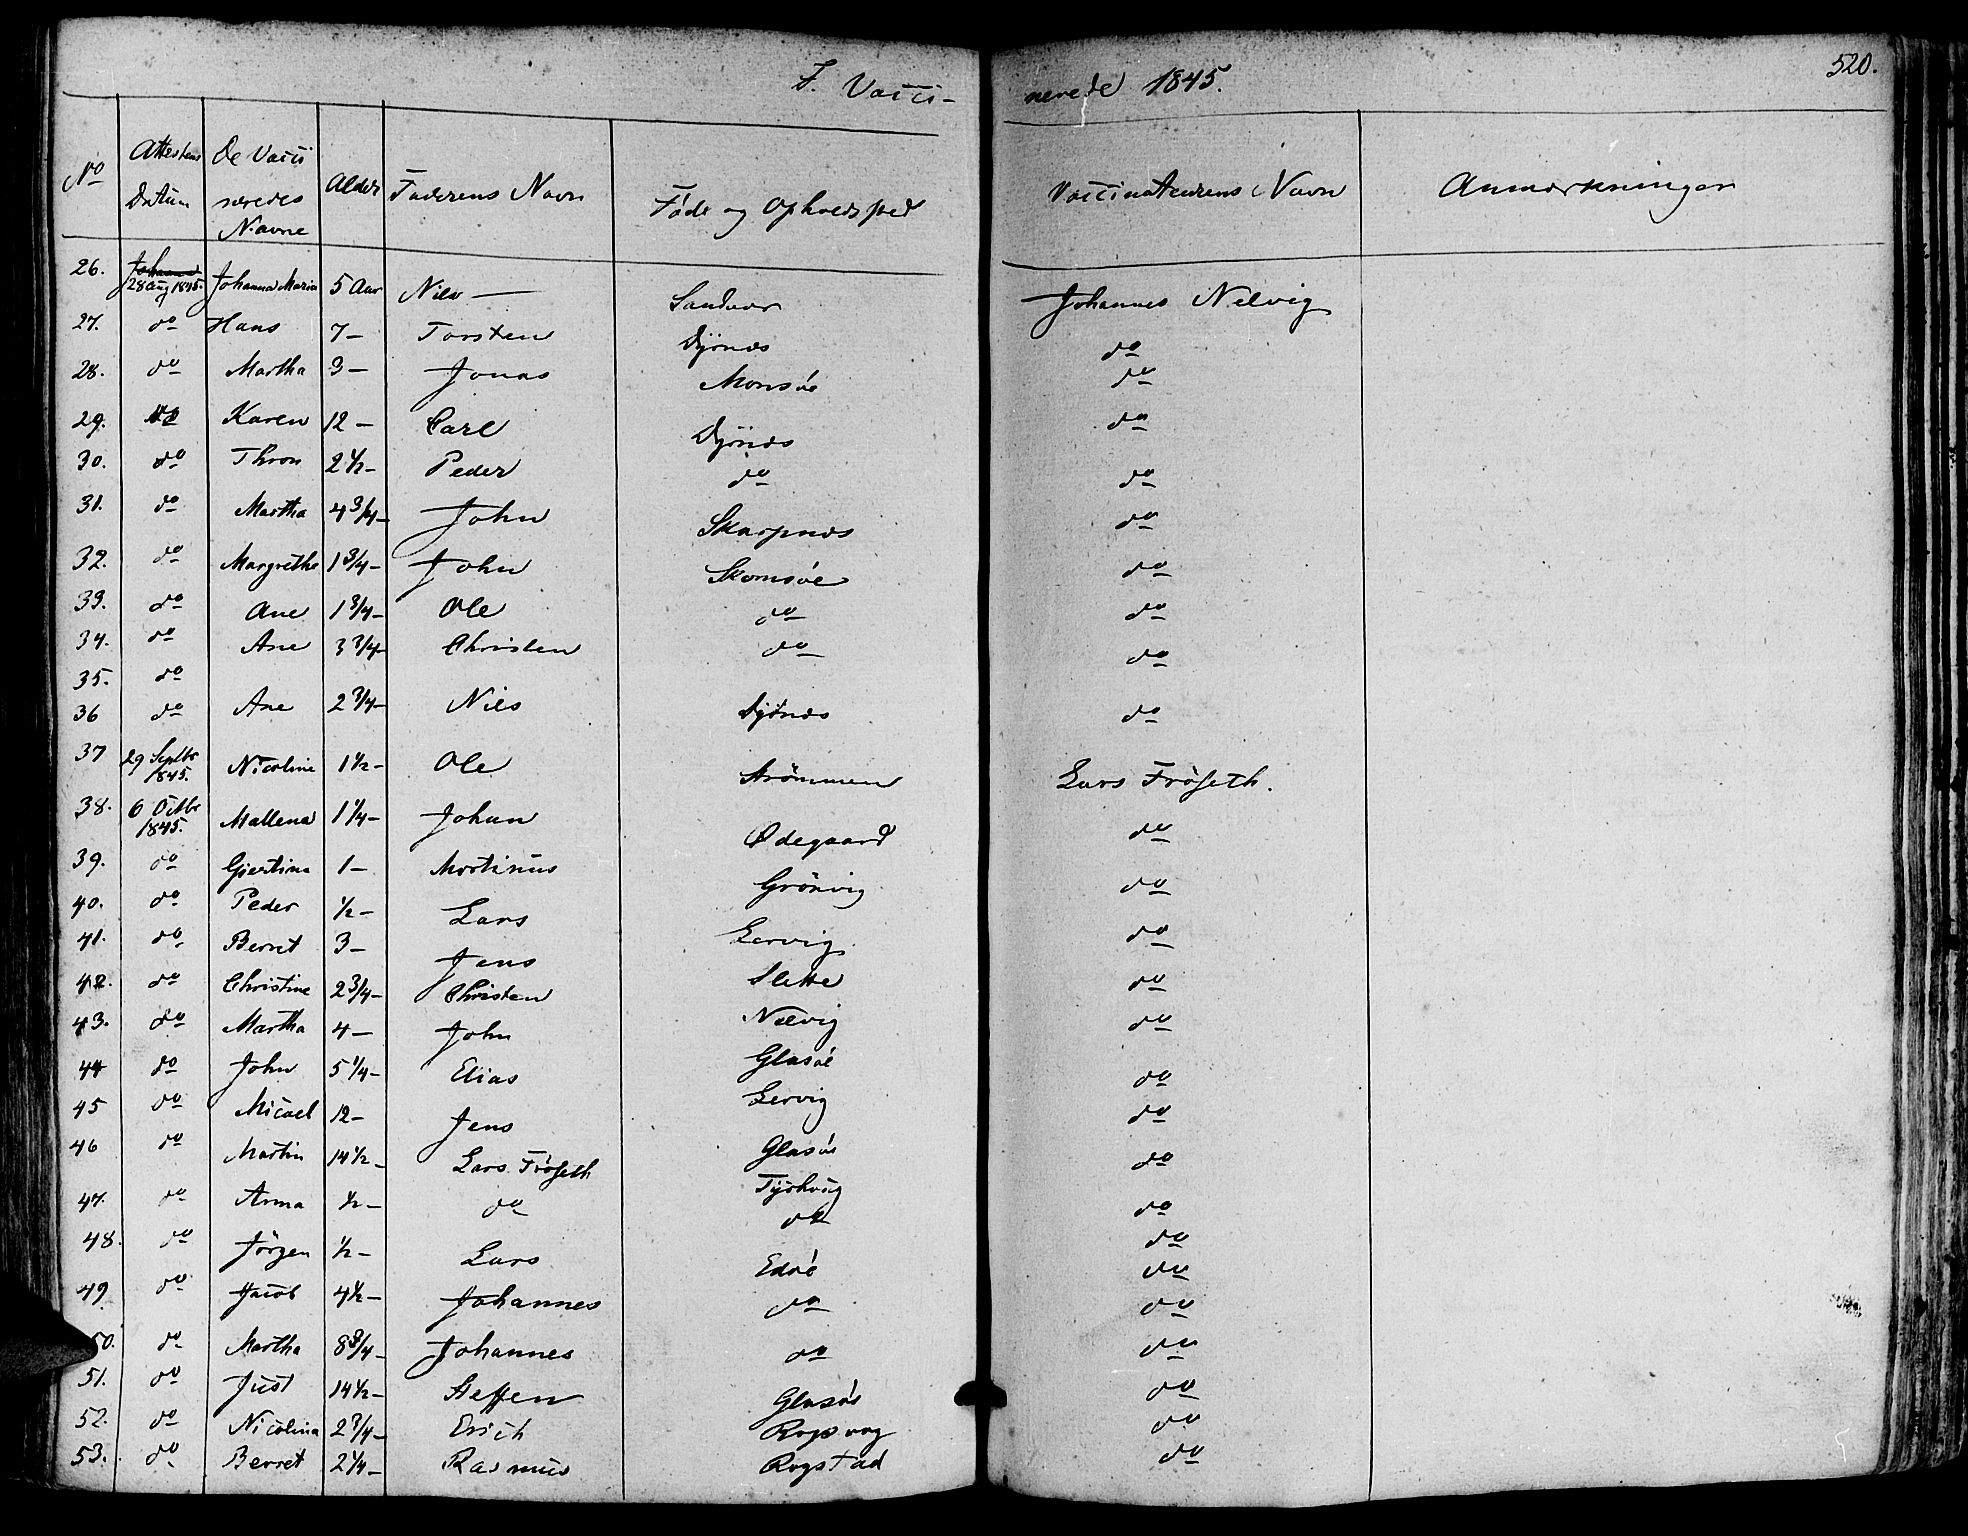 F. Vacci-
nerede 1845.
520.
No
Attestens Datum
De Vacci neredes Navne
Alder
Faderens Navn
Føde og Opholdssted
Vaccinateurens Navn
Anmærkninger
26. 28 Aug 1845. Johanna Maria 5 Aar Nils — Sandvær Johannes Nelvig
27. do Hans 7 – Torsten Dyrnæs do
28. do Martha 3 – Jonas Monsøe do
29. do Karen 12 – Carl Dyrnæs do
30. do Thron 2 1/2 – Peder do do
31. do Martha 4 3/4 – John Skarpnæs do
32. do Margrethe 1 3/4 – John Skomsøe do
33. do Ane 1 3/4 – Ole do do
34. do Ane 3 3/4 Christen do do
35. do
36 do Ane 2 3/4 – Nils Dyrnæs do
37 29 Septbr 1845. Nicoline 1 1/2 – Ole Strömmen Lars Fröseth.
38. 6 Octbr 1845. Mallena 1 1/4 – Johan Ødegaard do
39. do Gjertina 1 – Martinus Grönvig do
40. do Peder 1/2 – Lars Lervig do
41. do Berret 3 – Jens Slette do
42. do Christine 2 3/4 – Christen Nelvig do
43. do Martha 4 – John Glasøe do
44 do John 5 1/4 – Elias Lervig do
45 do Micael 12 – Jens Glasøe do
46 do Martin 14 1/2 – Lars Fröseth do
47. do Anna 1/2 – do do do
48. do Jörgen 1/2 – Lars Edøe do
49 do Jacob 4 1/2 – Johannes do do
50. do Martha 8 3/4 – Johannes do do
51. do Just 14 1/2 – Steffen Glasøe do
52. do Nicolina 2 3/4 – Erich do
53. do Berret 2 1/4 – Rasmus Rogstad do